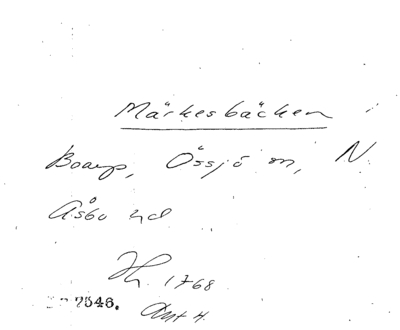 Märkesbäcken
Boarp, Össjö sn, N
Åsbo hd
1768
2546. Akt 4.